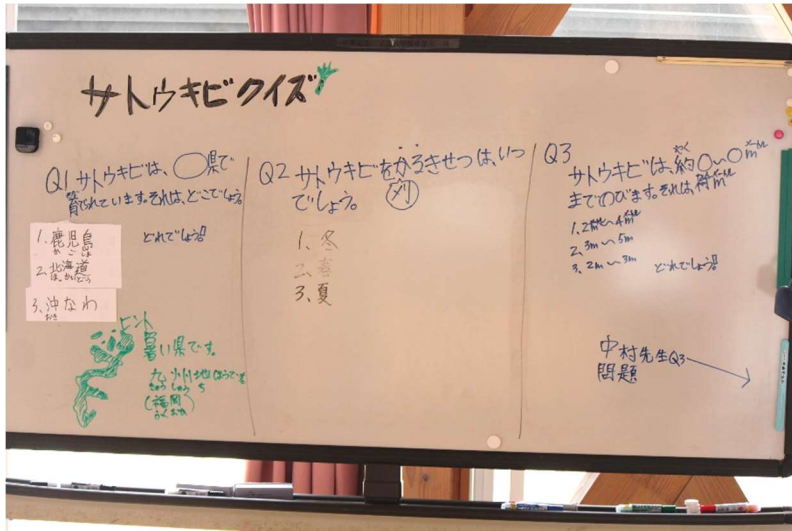 サトウキビクイズ
Q1 サトウキビは、○県で
育てられています。それは、どこでしょう。
1、鹿児島
かごしま
2、北海道
ほっかいどう
3、沖なわ
おき
どれでしょう!
ヒント
暑い県です。
九州地ほうです
きゅうしゅうち
(福岡)
ふくおか
Q2 サトウキビをかるきせつは、いつ
でしょう。 刈
1、冬
2、春
3、夏
Q3
やく
サトウキビは、約○〜○m
までのびます。それは、何m
1、2m〜4m
2、3m〜5m
3、2m〜3m どれでしょう!
中村先生Q3
問題